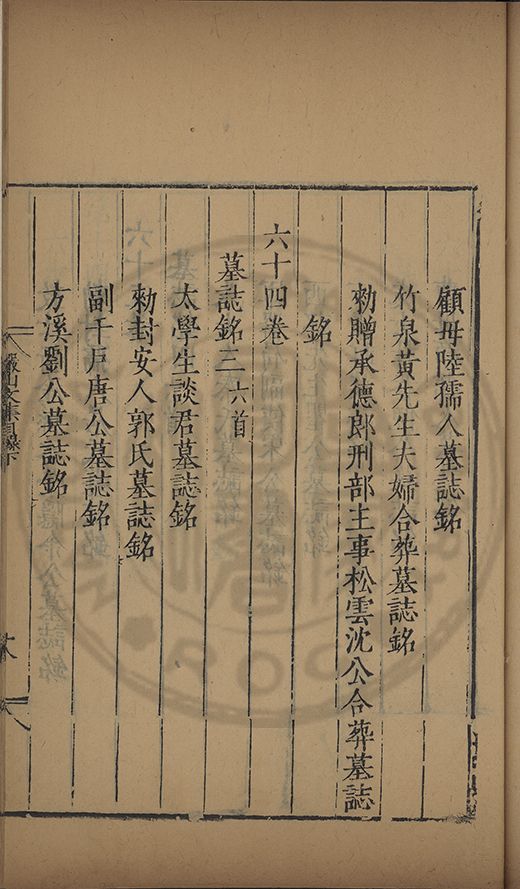 顧母陸孺人墓誌銘
竹泉黃先生夫婦合葬墓誌銘
勑贈承德郎刑部主事松雲沈公合葬墓誌
銘
六十四卷
墓誌銘三六首
太學生談君墓誌銘
勑封安人郭氏墓誌銘
副千戶唐公墓誌銘
方溪劉公墓誌銘
儼山文集目錄下